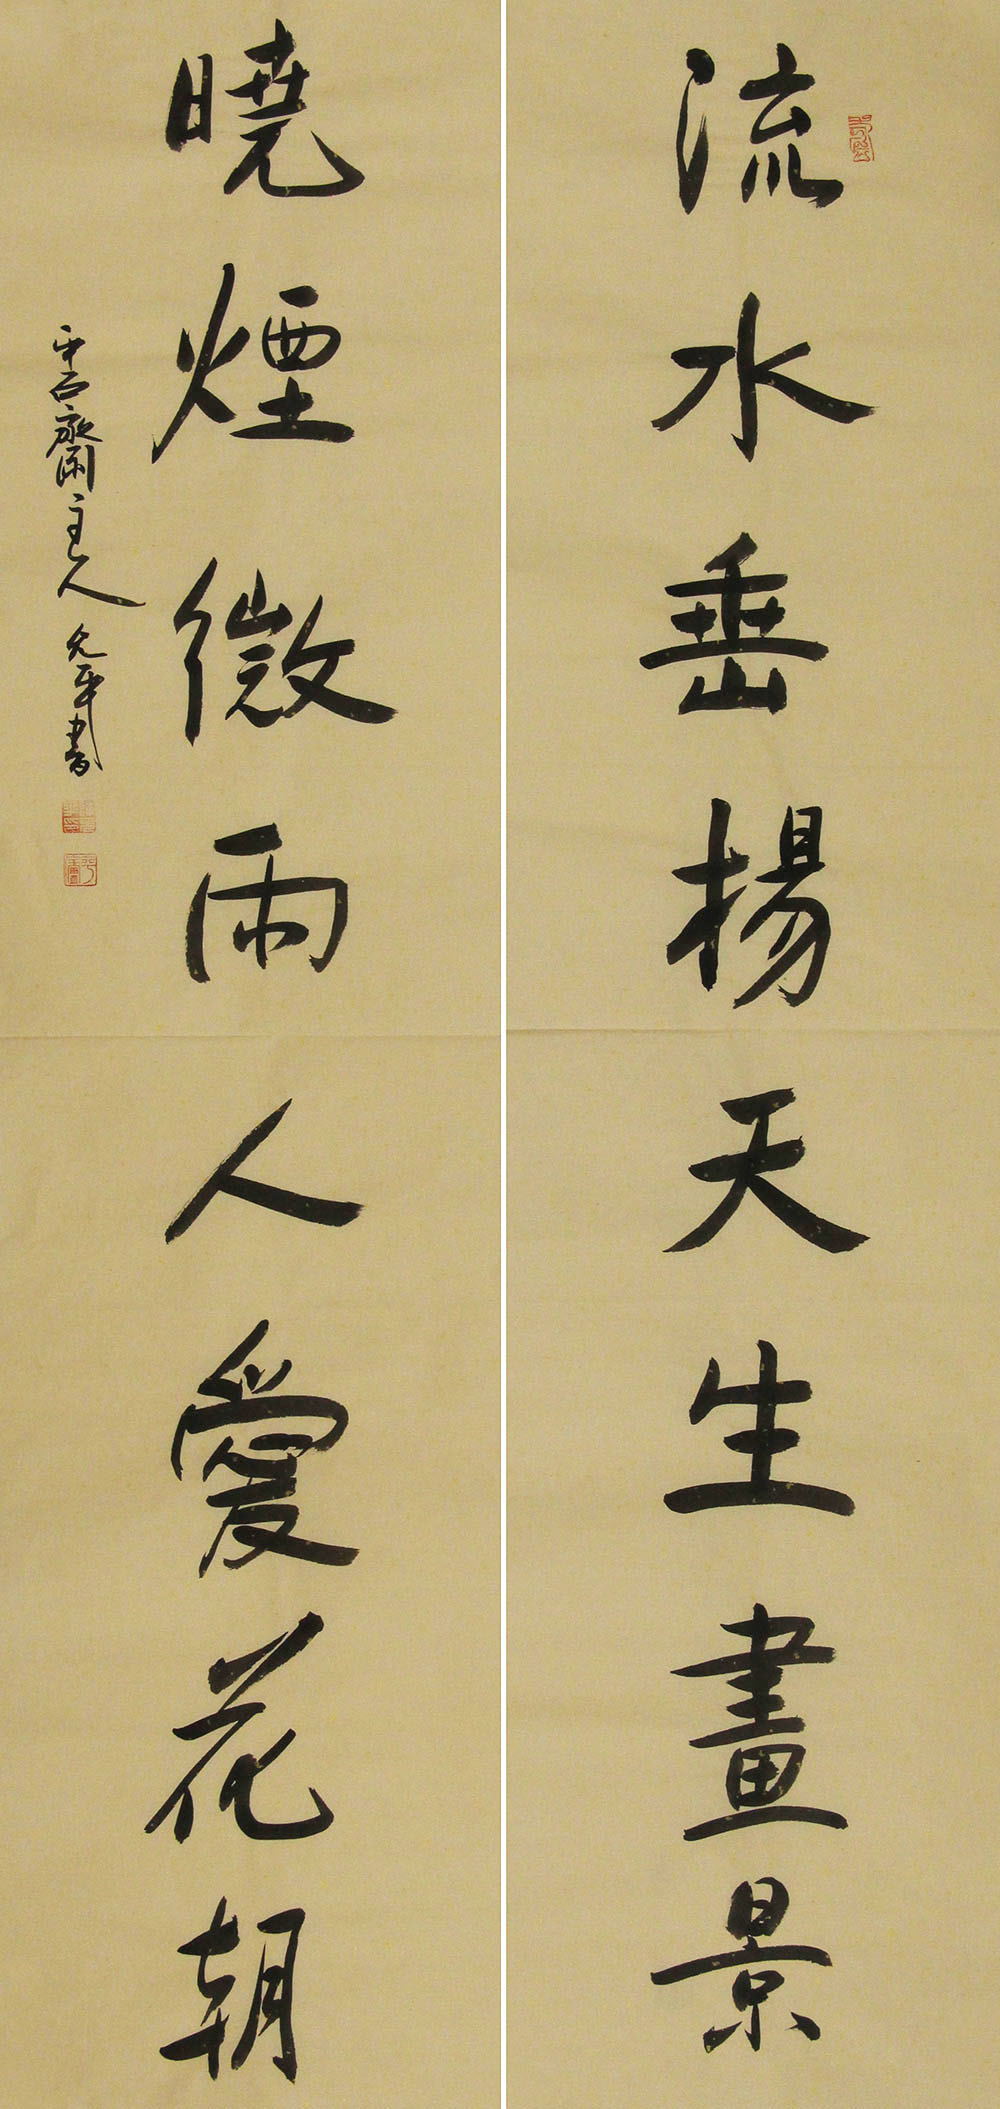 流水垂楊天生畫景
曉煙微雨人愛花朝
齋閑主人 允平書